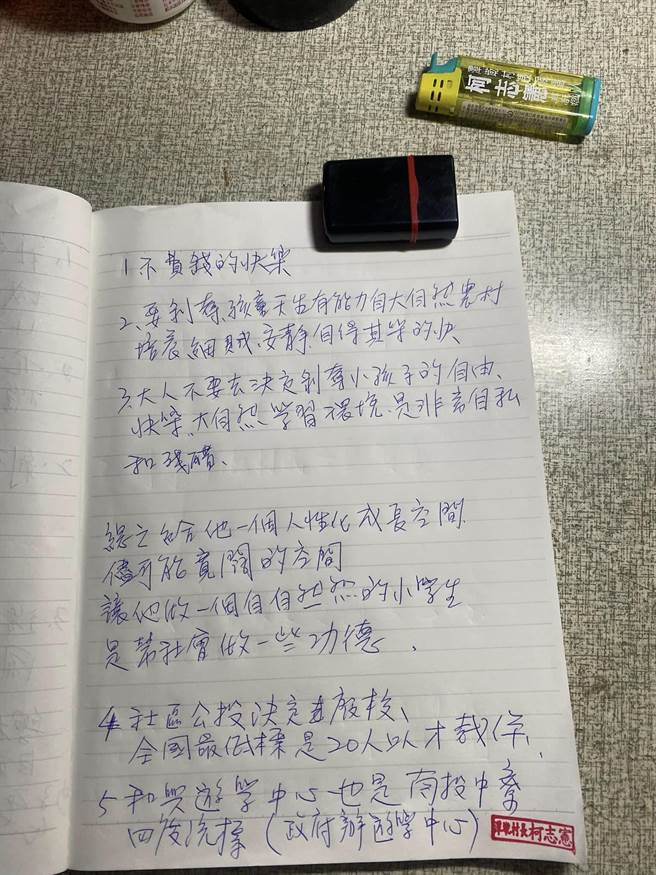 柯志憲
1 不費錢的快樂
2、要剝奪孩童天生有能力自大自然農村
培養細膩、安靜、自得其樂的快
3、大人不要去決定剝奪小孩子的自由、
快樂、大自然學習環境、是非常自私
和殘酷、
總之給他一個人性化成長空間
儘可能寬闊的空間
讓他做一個自自然然的小學生
是幫社會做一些功德、
4 社區公投決定廢校、
全國最低標是20人以才裁併、
5 和興遊學中心也是南投中寮
四度流標(政府辦遊學中心)
村長柯志憲